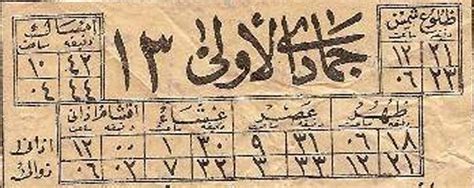 طلوع شمس
دقيقه ساعت
٢١ ١٢
٢٣ ٠٦
جمادى الاولى ١٣
امساك
دقيقه ساعت
٤٢ ١٠
٤٤ ٠٤
ظهر عصر عشاء اقشام اذانى
دقيقه ساعت دقيقه ساعت دقيقه ساعت دقيقه ساعت
١٨ ٠٦ ٣١ ٩ ٣٠ ١ ٠٠ ١٢ اذانى
٢١ ١٢ ٣٣ ٣ ٣٢ ٧ ٠٢ ٠٦ زوالى